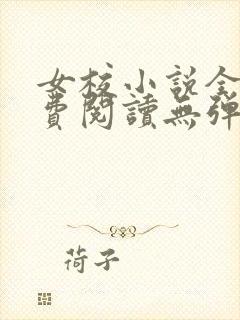 女校小说全
費閱讀無弹
荷子